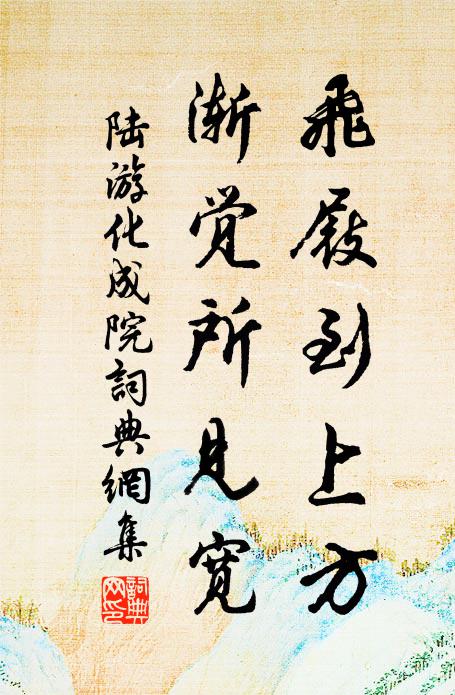 飛屐到上方
渐觉所见宽
陆游化成院詞典網集
詞典网印